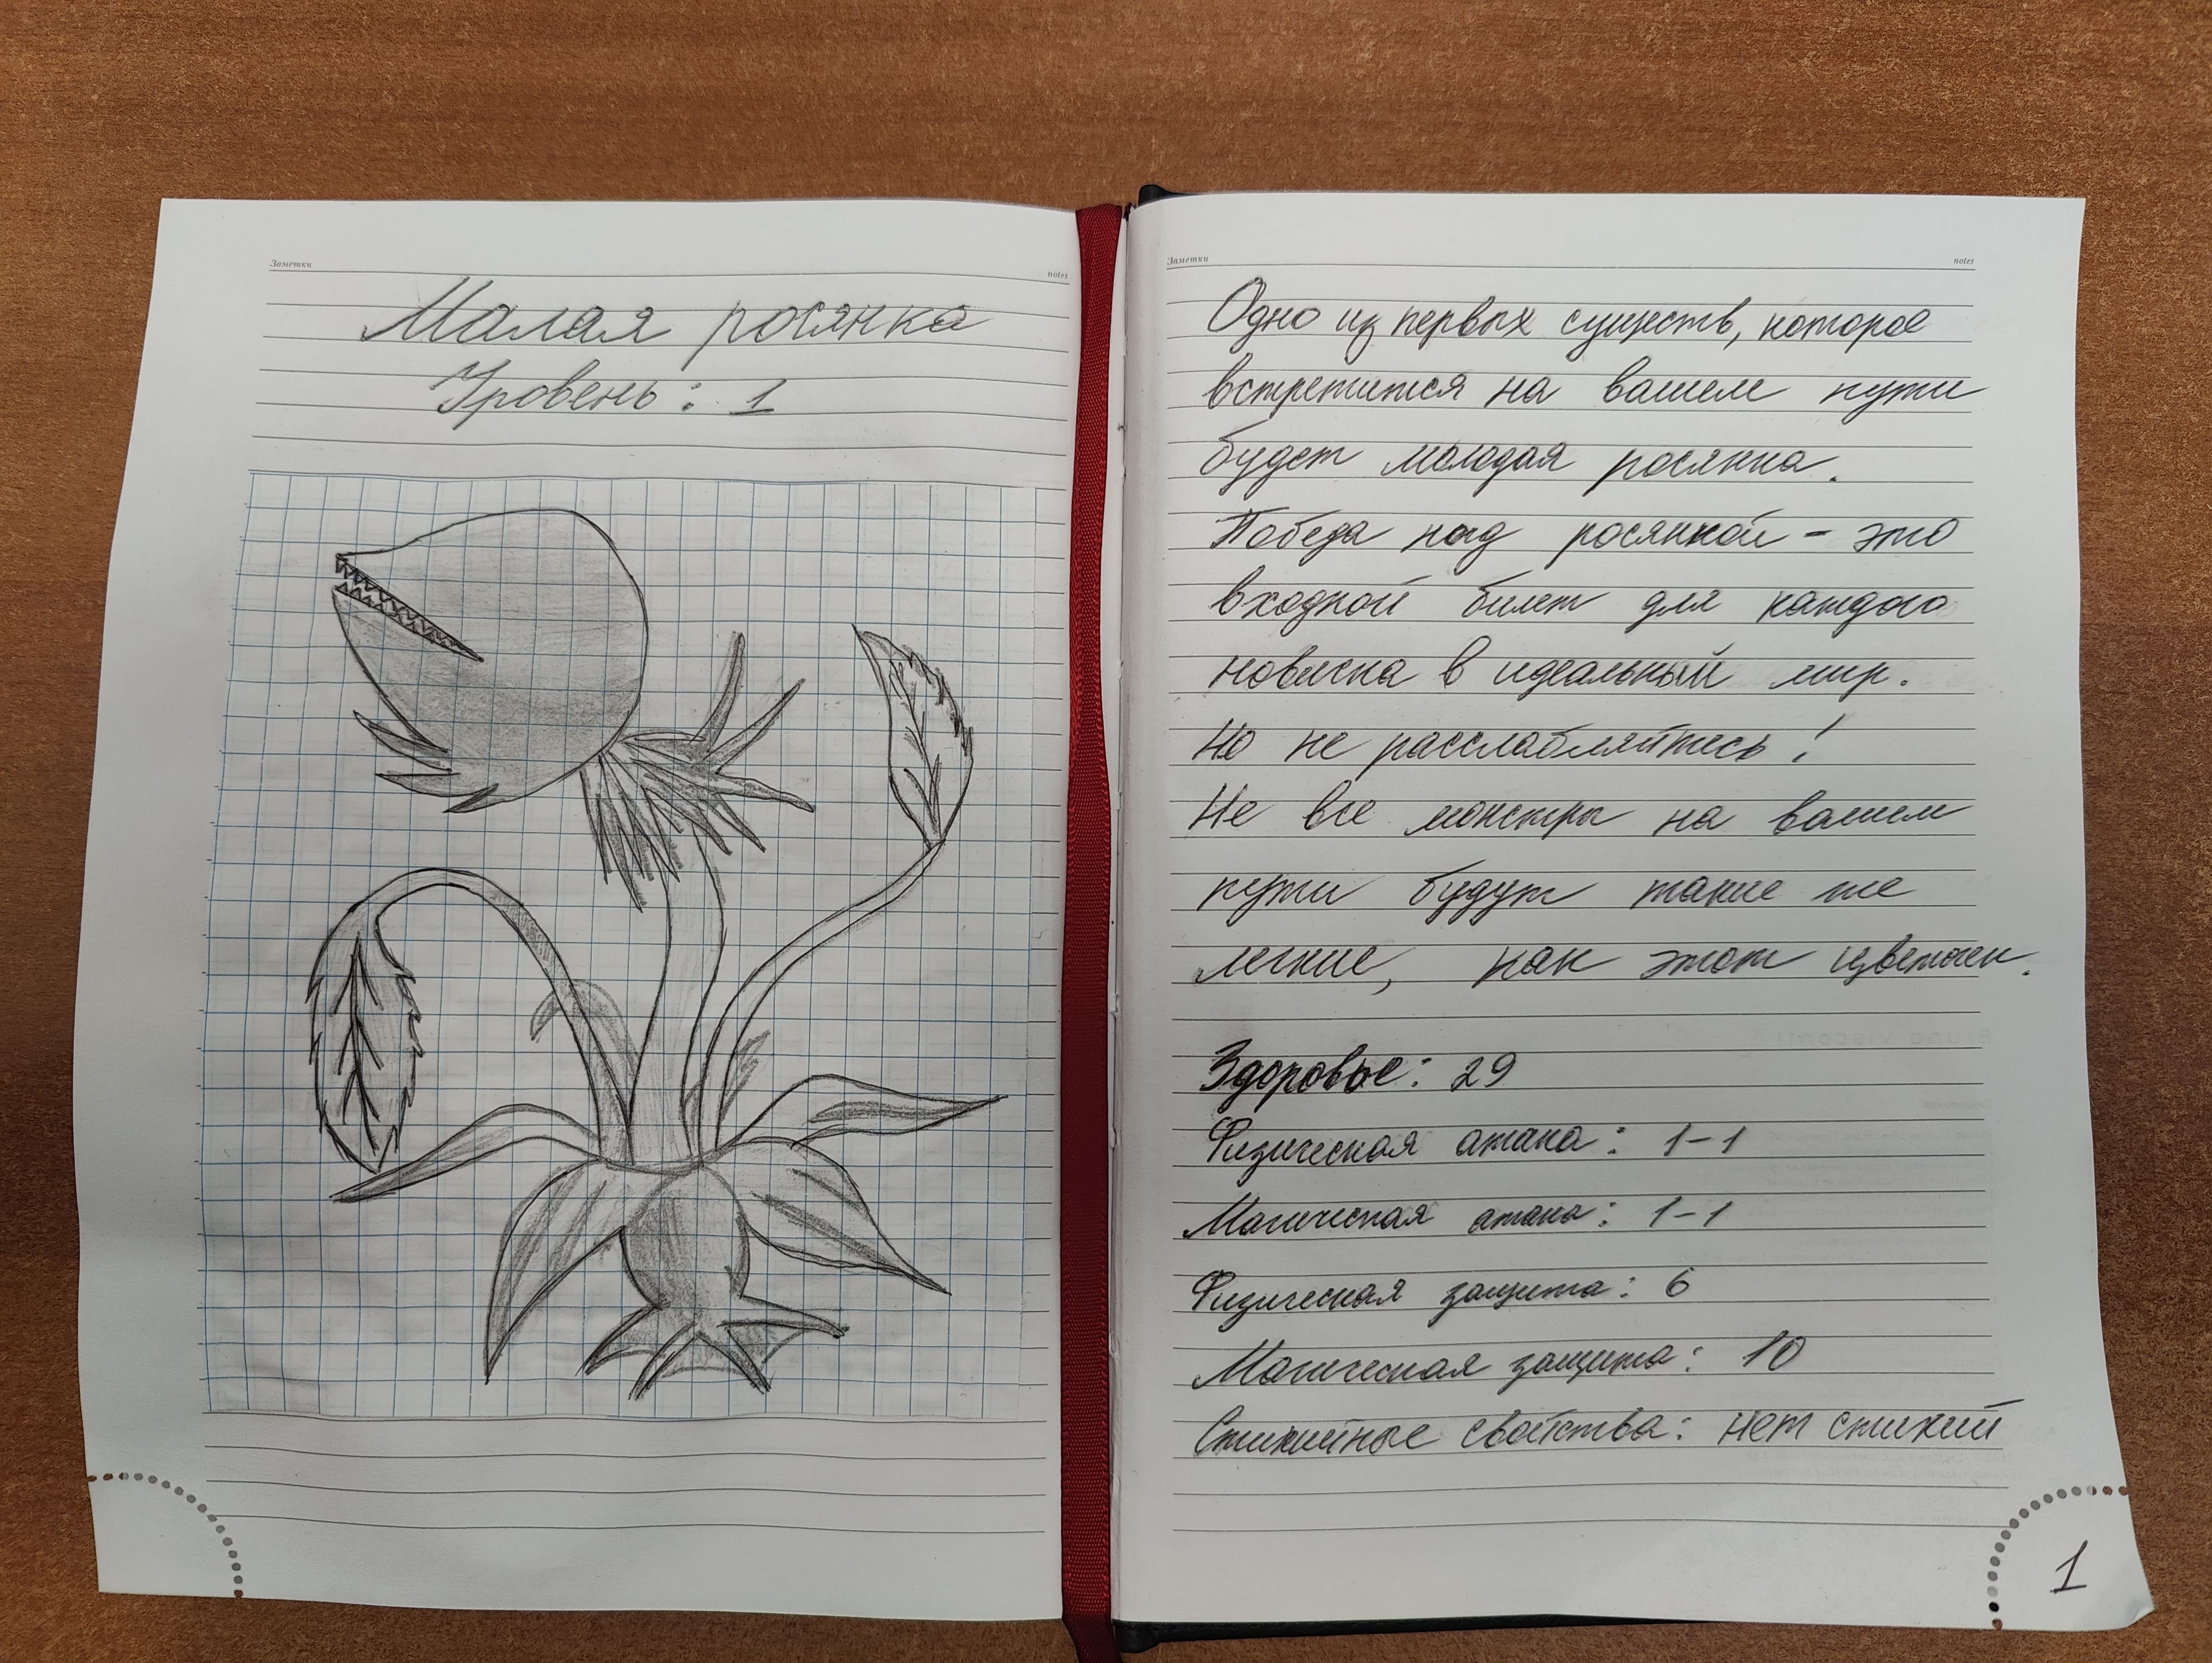 Заметки notes
Малая росянка
Уровень: 1
Заметки notes
Одно из первых существ, которое
встретится на вашем пути
будет молодая росянка.
Победа над росянкой - это
входной билет для каждого
новичка в идеальный мир.
Но не расслабляйтесь!
Не все монстры на вашем
пути будут такие же
легкие, как этот цветочек.
Здоровье: 29
Физическая атака: 1-1
Магическая атака: 1-1
Физическая защита: 6
Магическая защита: 10
Стихийные свойства: нет стихий
1